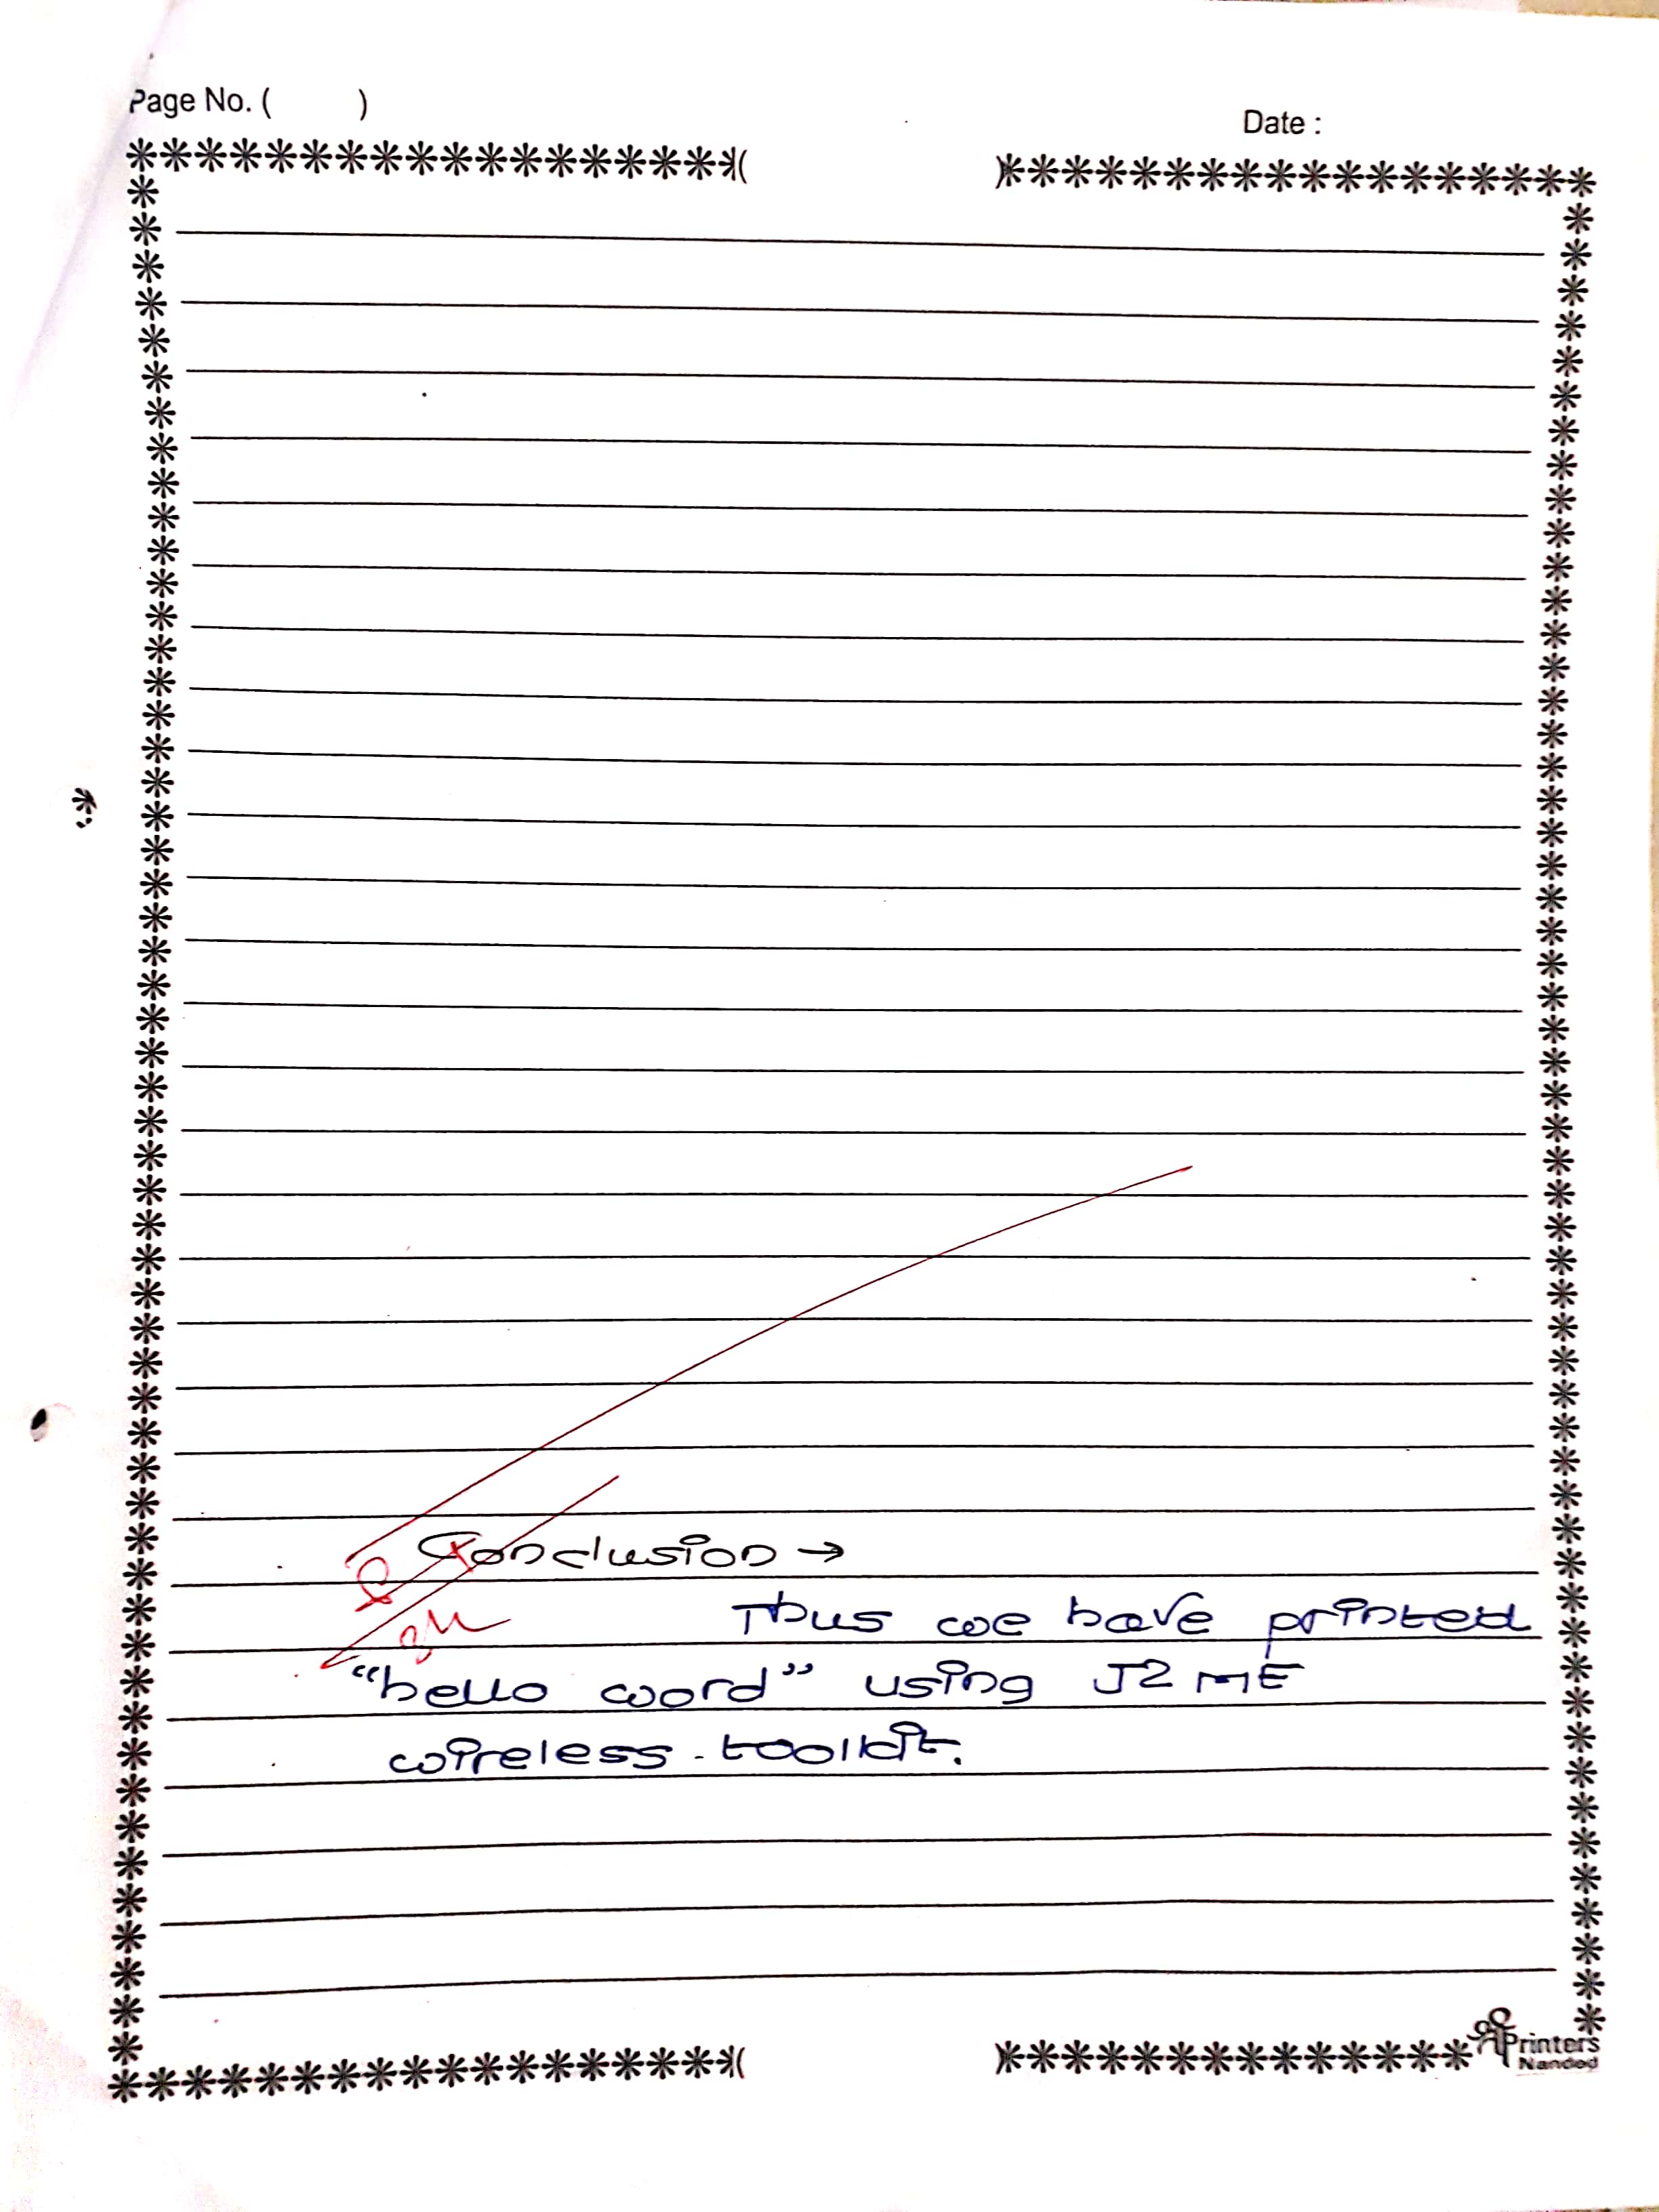 Page No. ( )
Date :
Conclusion →
Thus we have printed
"hello word" using J2ME
wireless toolkit.
Printers
Nanded